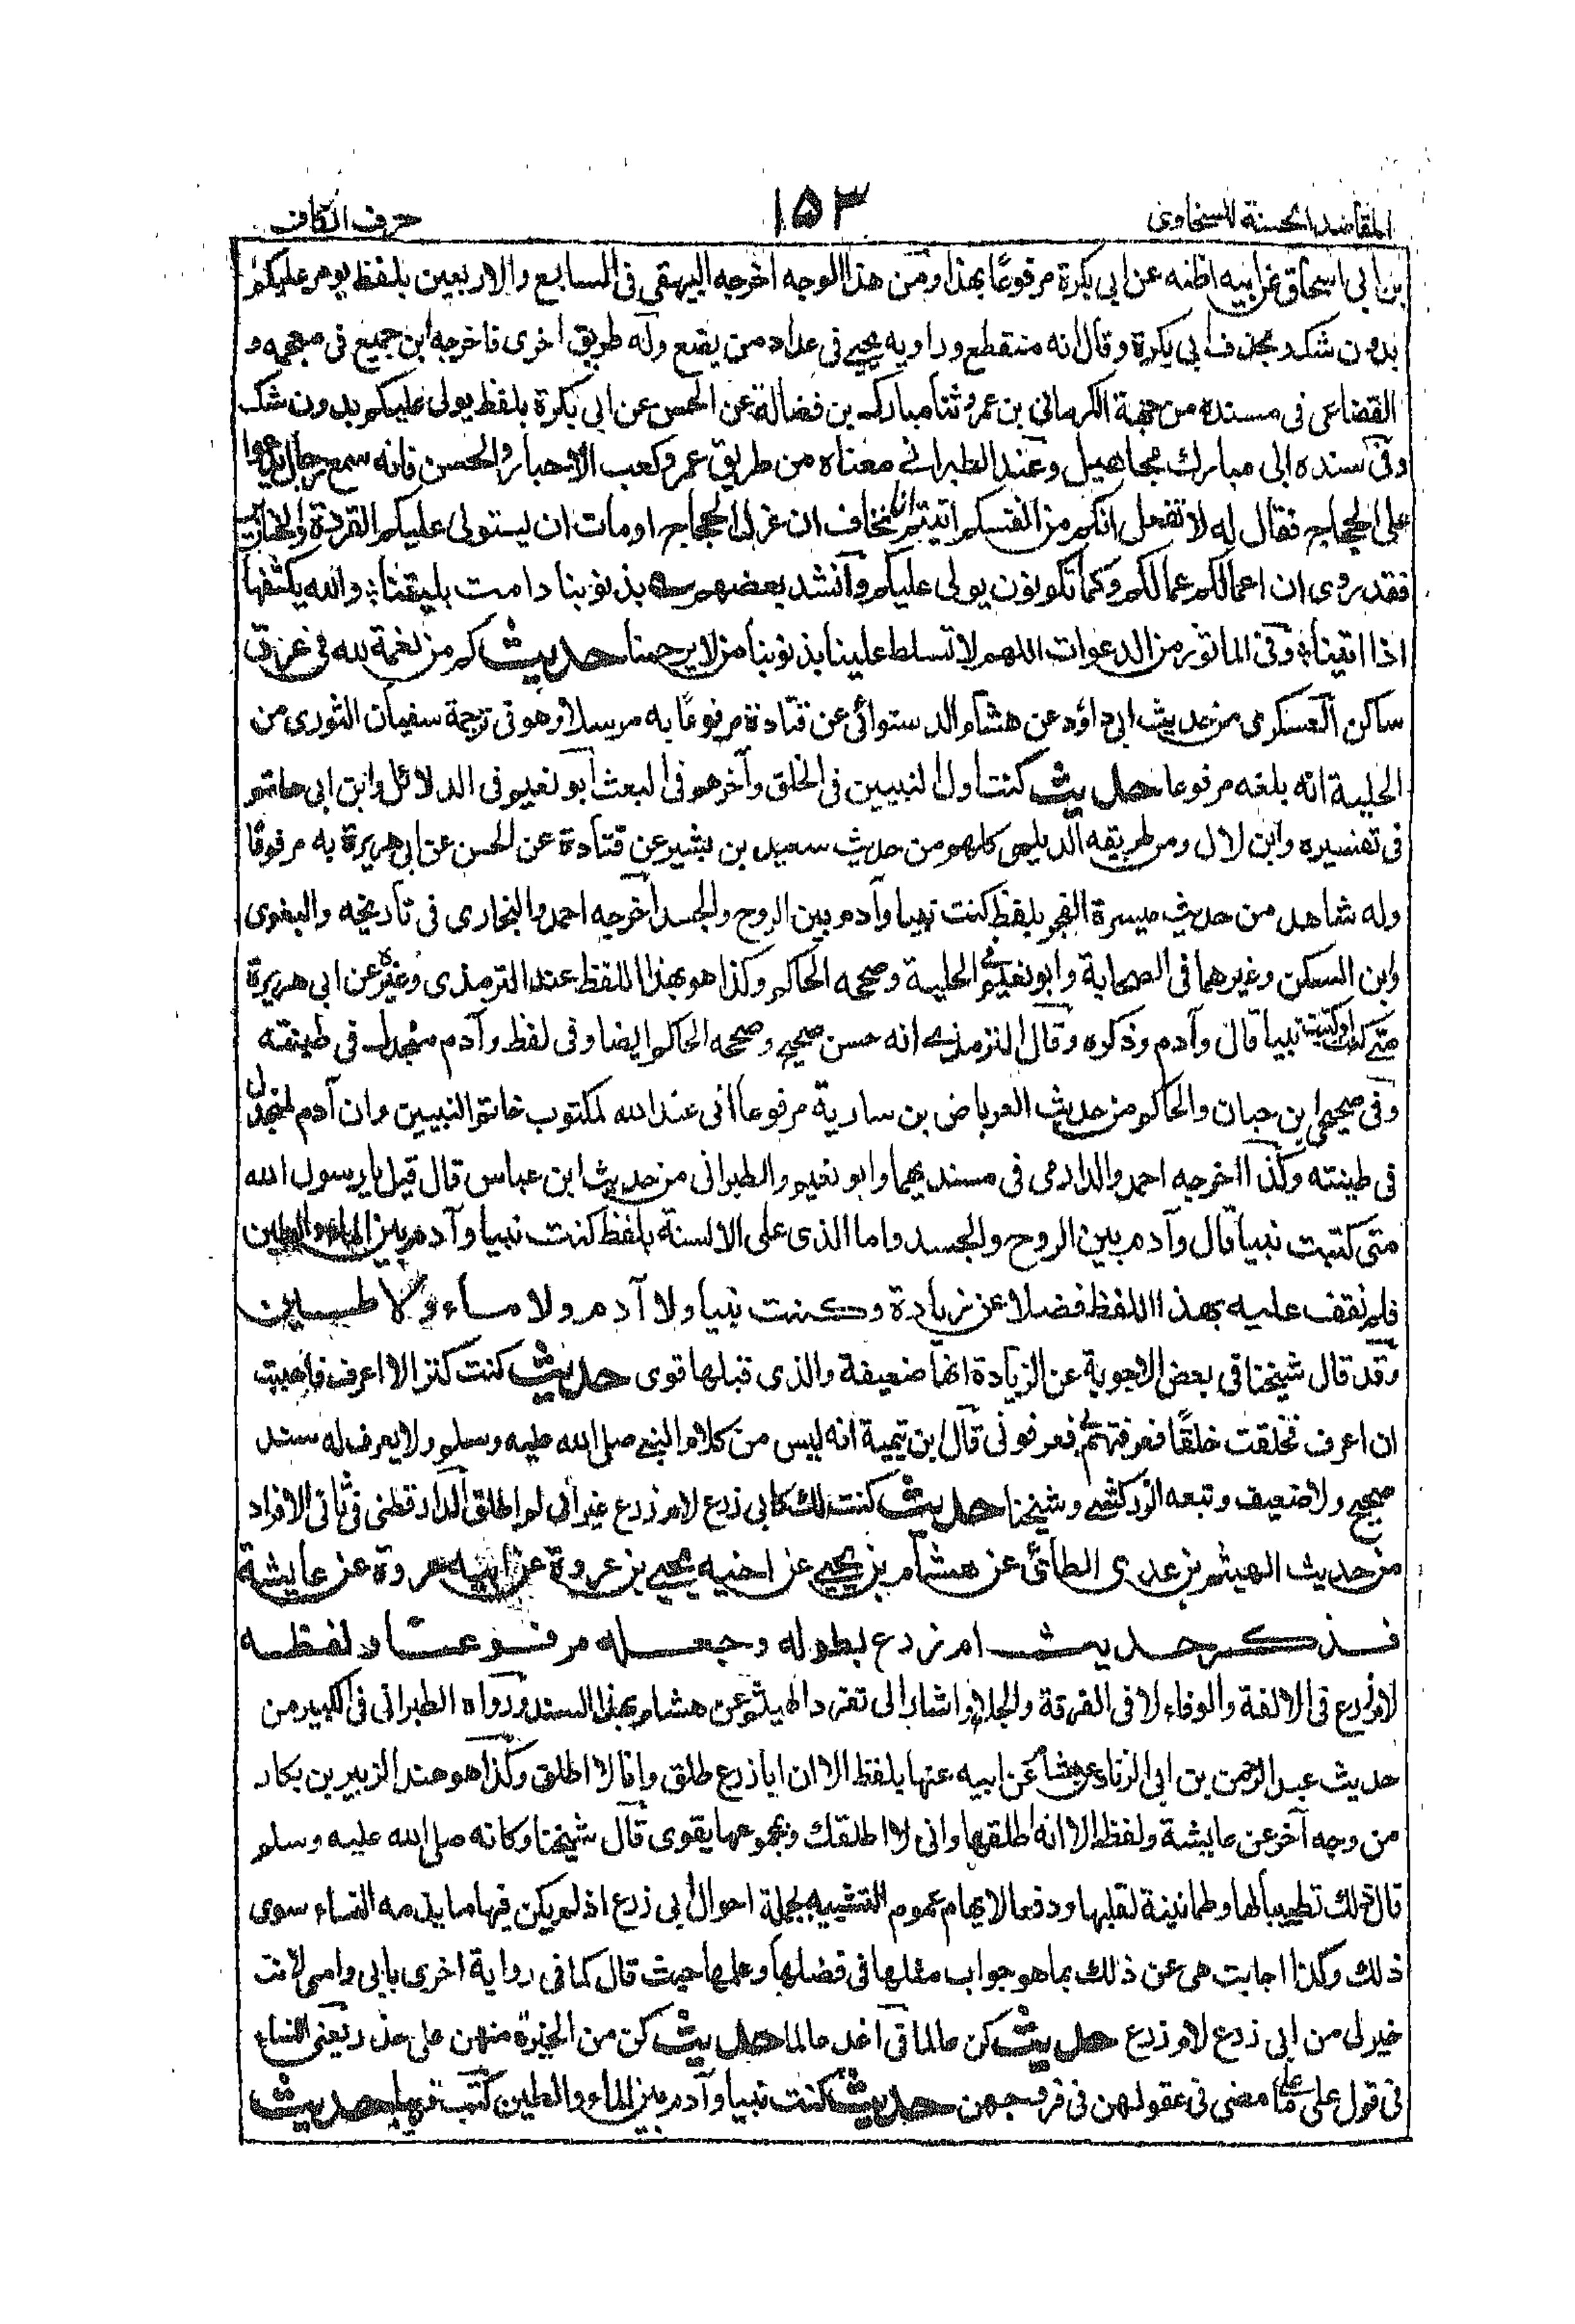 المقاصد الحسنة للسخاوى
١٥٣
حرف الكاف
بن ابى اسحاق عن ابيه اظنه عن ابى بكرة مرفوعًا بهذا ومن هذا الوجه اخرجه البيهقى فى السابع والاربعين بلفظ يومر عليكم
بدون شك وبحذف ابى بكرة وقال انه منقطع وراويه يحيى فى عداد من يضع وله طريق اخرى فاخرجه ابن جميع فى معجمه و
القضاعى فى مسنده من جهة الكرمانى بن عمرو ثنا مبارك بن فضالة عن الحسن عن ابى بكرة بلفظ يولى عليكم بدون شك
وفى سنده الى مبارك مجاهيل وعند الطبرانى معناه من طريق عمر وكعب الاحبار والحسن فانه سمع رجلا يدعوا
على الحجاج فقال له لا تفعل انكم من انفسكم اتيتم انا نخاف ان عزل الحجاج او مات ان يستولى عليكم القردة والخنازير
فقد روى ان اعمالكم عمالكم وكما تكونون يولى عليكم وانشد بعضهم بذنوبنا دامت بليتنا والله يكشفها
اذا اتقينا وفى الماثور من الدعوات اللهم لا تسلط علينا بذنوبنا من لا يرحمنا حديث كم من نعمة لله فى عرق
ساكن العسكرى من حديث ابى داؤد عن هشام الدستوائى عن قتادة مرفوعًا به مرسلا وهو فى ترجمة سفيان الثورى من
الحلية انه بلغه مرفوعا حديث كنت اول النبيين فى الخلق وآخرهم فى البعث ابو نعيم فى الدلائل وابن ابى حاتم
فى تفسيره وابن لال ومن طريقه الديلمى كلهم من حديث سعيد بن بشير عن قتادة عن الحسن عن ابى هريرة به مرفوعًا
وله شاهد من حديث ميسرة الفجر بلفظ كنت نبيا وآدم بين الروح والجسد اخرجه احمد والبخارى فى تأريخه والبغوى
وابن السكن وغيرهما فى الصحابة وابو نعيم فى الحلية وصححه الحاكم وكذا هو بهذا اللفظ عند الترمذى وغيره عن ابى هريرة
متى كنت او كتبت نبيا قال وآدم وذكره وقال الترمذى انه حسن صحيح وصححه الحاكم ايضا وفى لفظ وآدم منجدل فى طينته
وفى صحيحى ابن حبان والحاكم من حديث العرباض بن سارية مرفوعا انى عند الله لمكتوب خاتم النبيين وان آدم لمنجدل
فى طينته وكذا اخرجه احمد والدارمى فى مسنديهما وابو نعيم والطبرانى من حديث ابن عباس قال قيل يا رسول الله
متى كتبت نبيا قال وآدم بين الروح والجسد واما الذى على الالسنة بلفظ كنت نبيا وآدم بين الماء والطين
فلم نقف عليه بهذا اللفظ فضلا عن زيادة وكنت نبيا ولا آدم ولا ماء ولا طين
وقد قال شيخنا فى بعض الاجوبة عن الزيادة انها ضعيفة والذى قبلها قوى حديث كنت كنزا لا اعرف فاحببت
ان اعرف فخلقت خلقًا فعرفتهم بى فعرفونى قال ابن تيمية انه ليس من كلام النبى صلى الله عليه وسلم ولا يعرف له سند
صحيح ولا ضعيف وتبعه الزركشى وشيخنا حديث كنت لك كابى زرع لام زرع غير انى لم اطلق الدارقطنى فى ثانى الافراد
من حديث الهيثم بن عدى الطائى عن هشام بن يحيى عن اخيه يحيى بن عروة عن ابيه عروة عن عايشة
فذكر حديث ام زرع بطوله وجعله مرفوعا ولفظه
لام زرع فى الالفة والوفاء لا فى الفرقة والجلاء واشار الى تفرد الهيثم عن هشام بهذا السند ورواه الطبرانى فى الكبير من
حديث عبد الرحمن بن ابى الزناد عن هشام عن ابيه عنها بلفظ الا ان ابا زرع طلق وانا لا اطلق وكذا هو عند الزبير بن بكار
من وجه آخر عن عايشة ولفظه الا انه طلقها وانى لا اطلقك وبمجموعها يقوى قال شيخنا وكانه صلى الله عليه وسلم
قال ذلك تطييبا لها وطمانينة لقلبها ودفعا لايهام عموم التشبيه بجملة احوال ابى زرع اذ لم يكن فيها ما يذمه النساء سوى
ذلك وكذا اجابت هى عن ذلك بما هو جواب مثلها فى فضلها وعلمها حيث قال كما فى رواية اخرى بابى وامى لانت
خير لى من ابى زرع لام زرع حديث كن عالما فى اغد عالما حديث كن من الخيرة منهن على حذر يعنى النساء
فى قول على ما مضى فى عقولهن فى فروجهن حديث كنت نبيا وآدم بين الماء والطين كتب فيها حديث